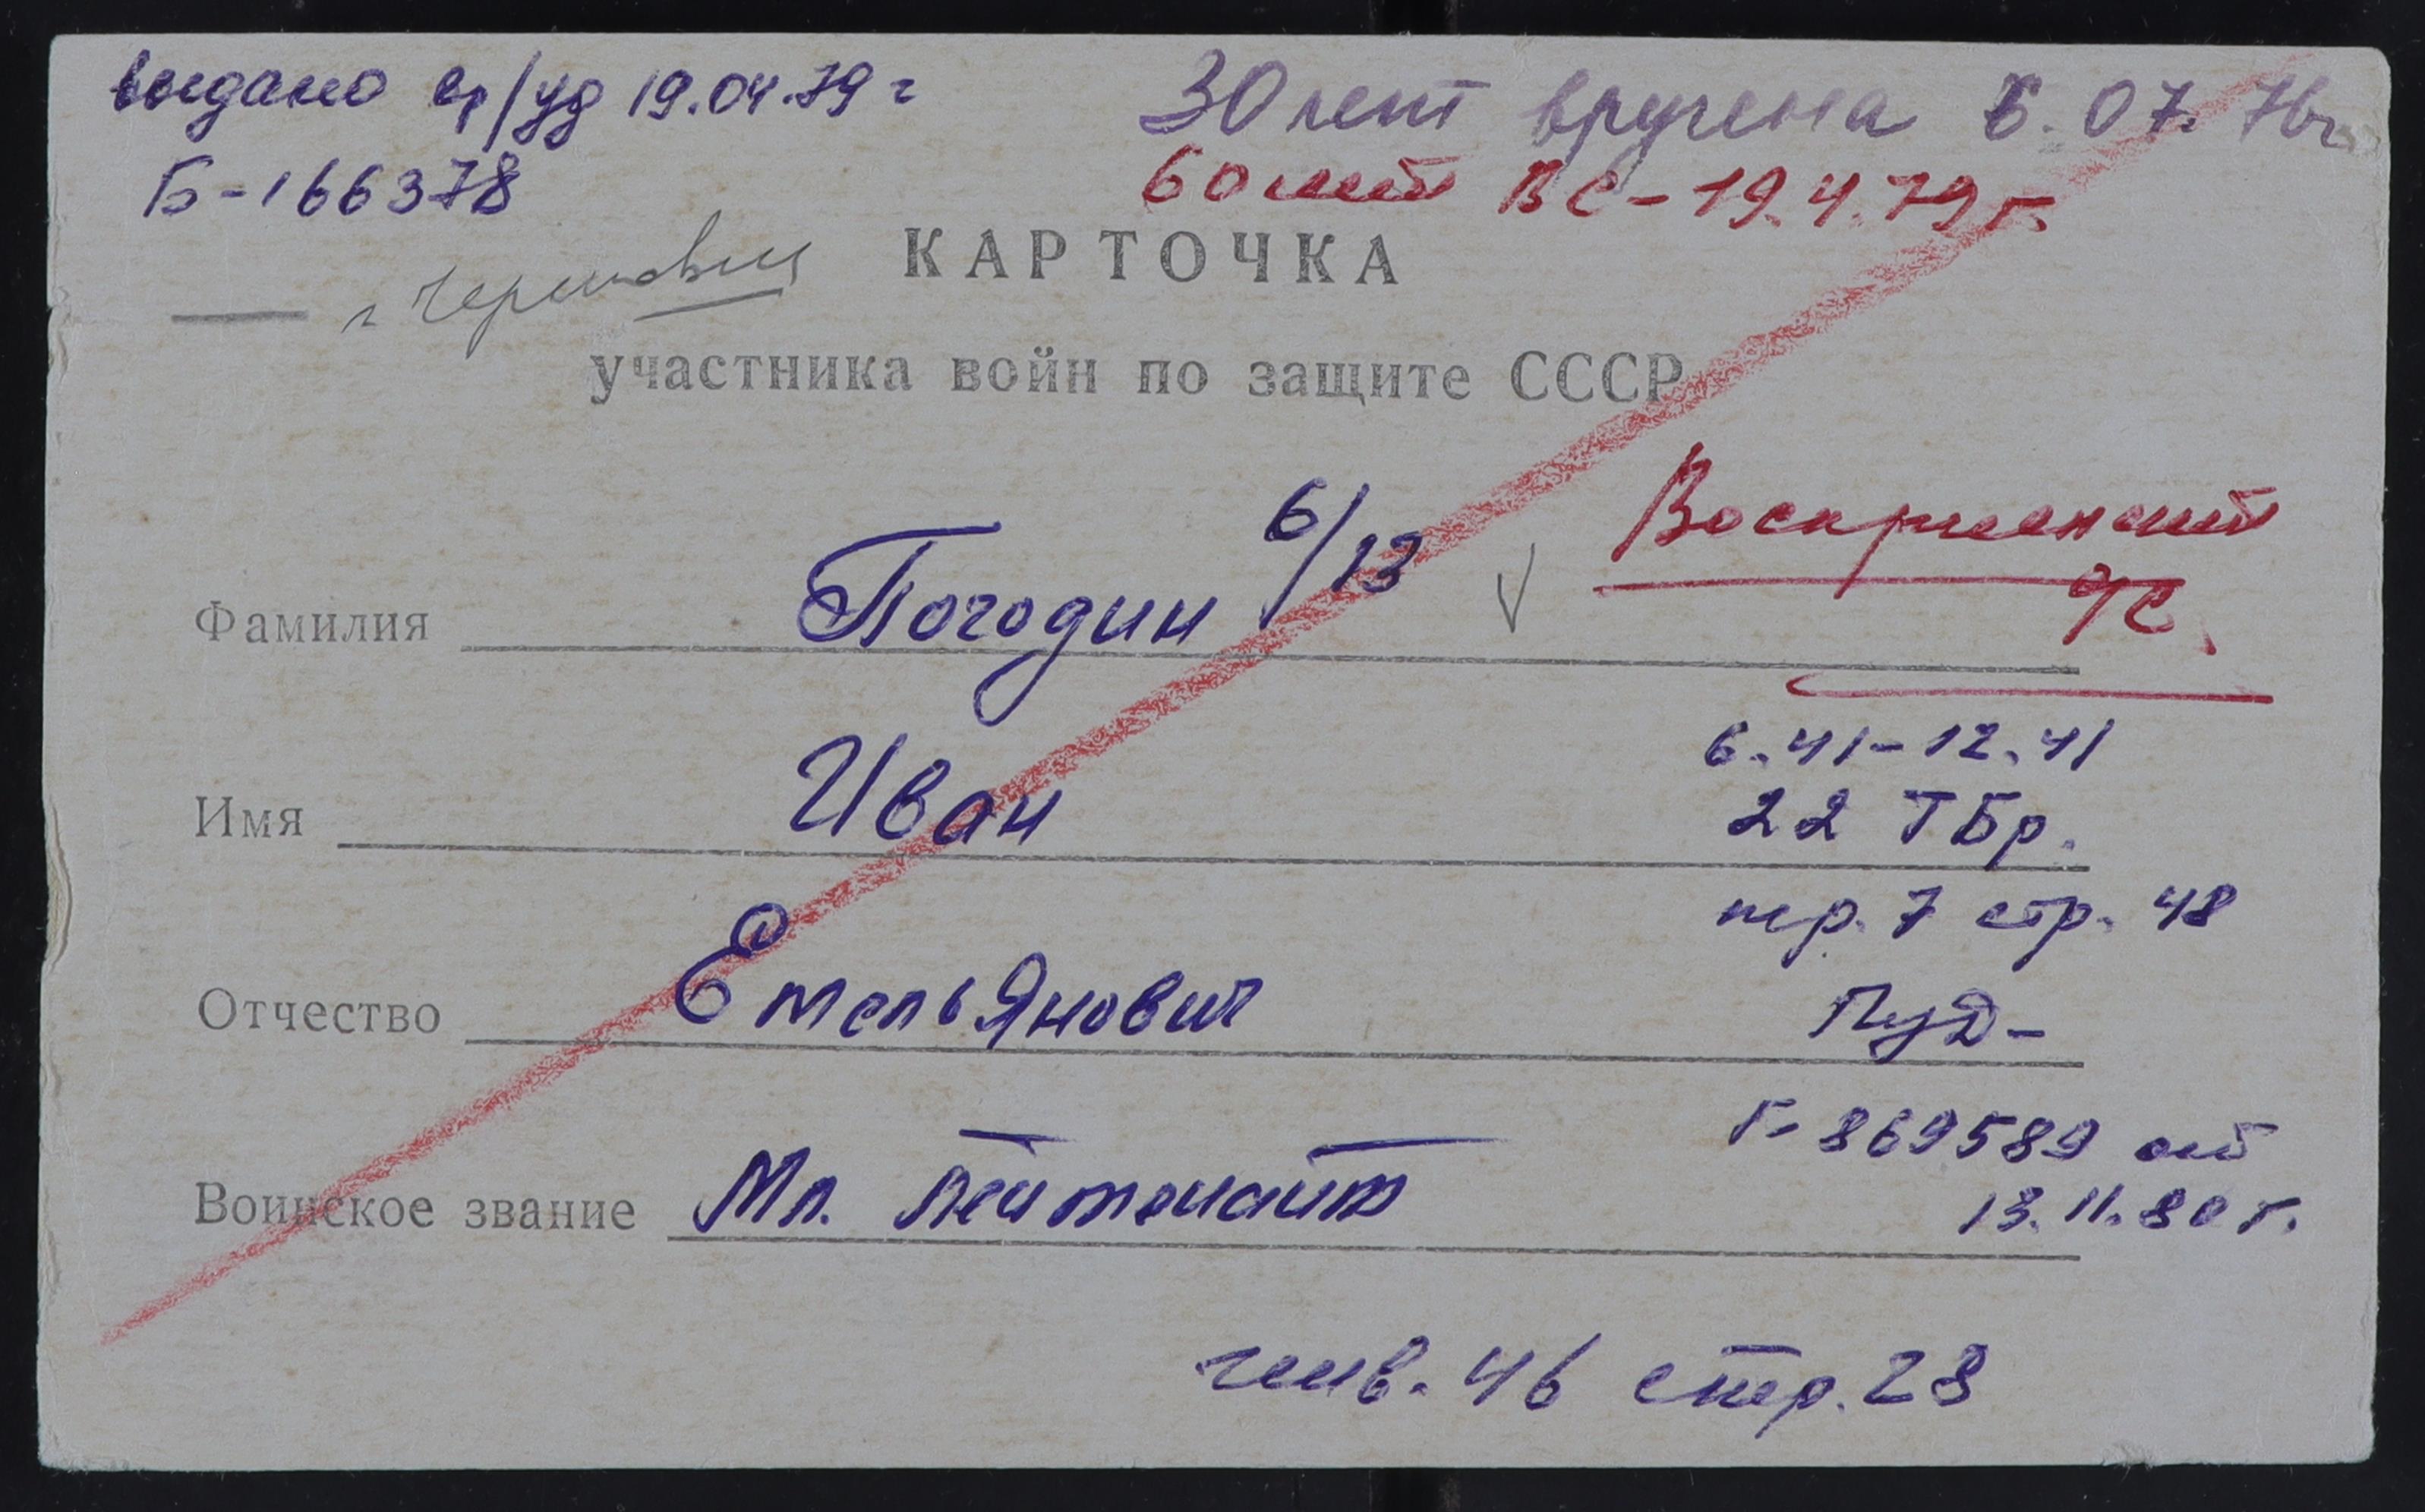 выдано ср/уд 19.04.79 г
Б-166378
30 лет вручена 6.07.76г.
60 лет ВС-19.4.79 г.
КАРТОЧКА
участника войн по защите СССР
6/13
Фамилия Погодин
Имя Иван
6.41-12.41
22 ТБр.
пер. 7 стр. 48
Отчество Емельянович
ПуД-
Г-869589 от
13.11.80 г.
Воинское звание Мл. лейтенант
инв. 46 стр. 28